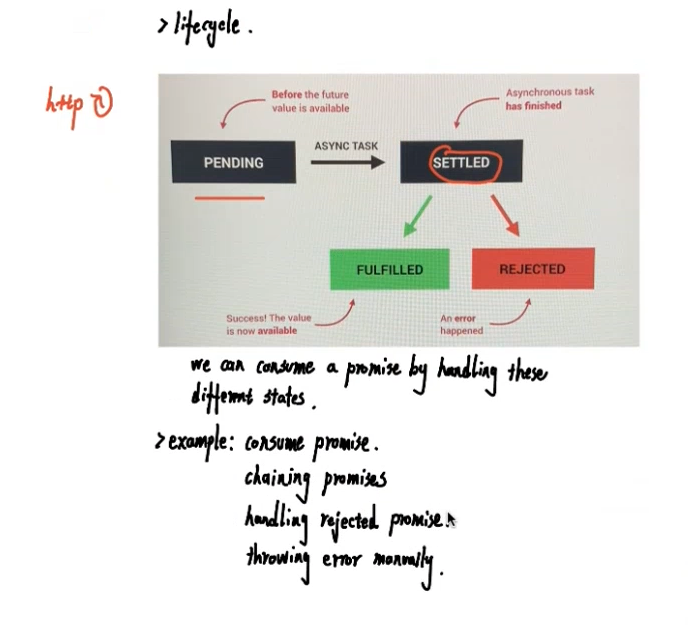 > lifecycle.
http ①
Before the future
value is available
Asynchronous task
has finished
PENDING
ASYNC TASK
SETTLED
FULFILLED
REJECTED
Success! The value
is now available
An error
happened
we can consume a promise by handling these
different states.
> example: consume promise.
chaining promises
handling rejected promises
throwing error manually.